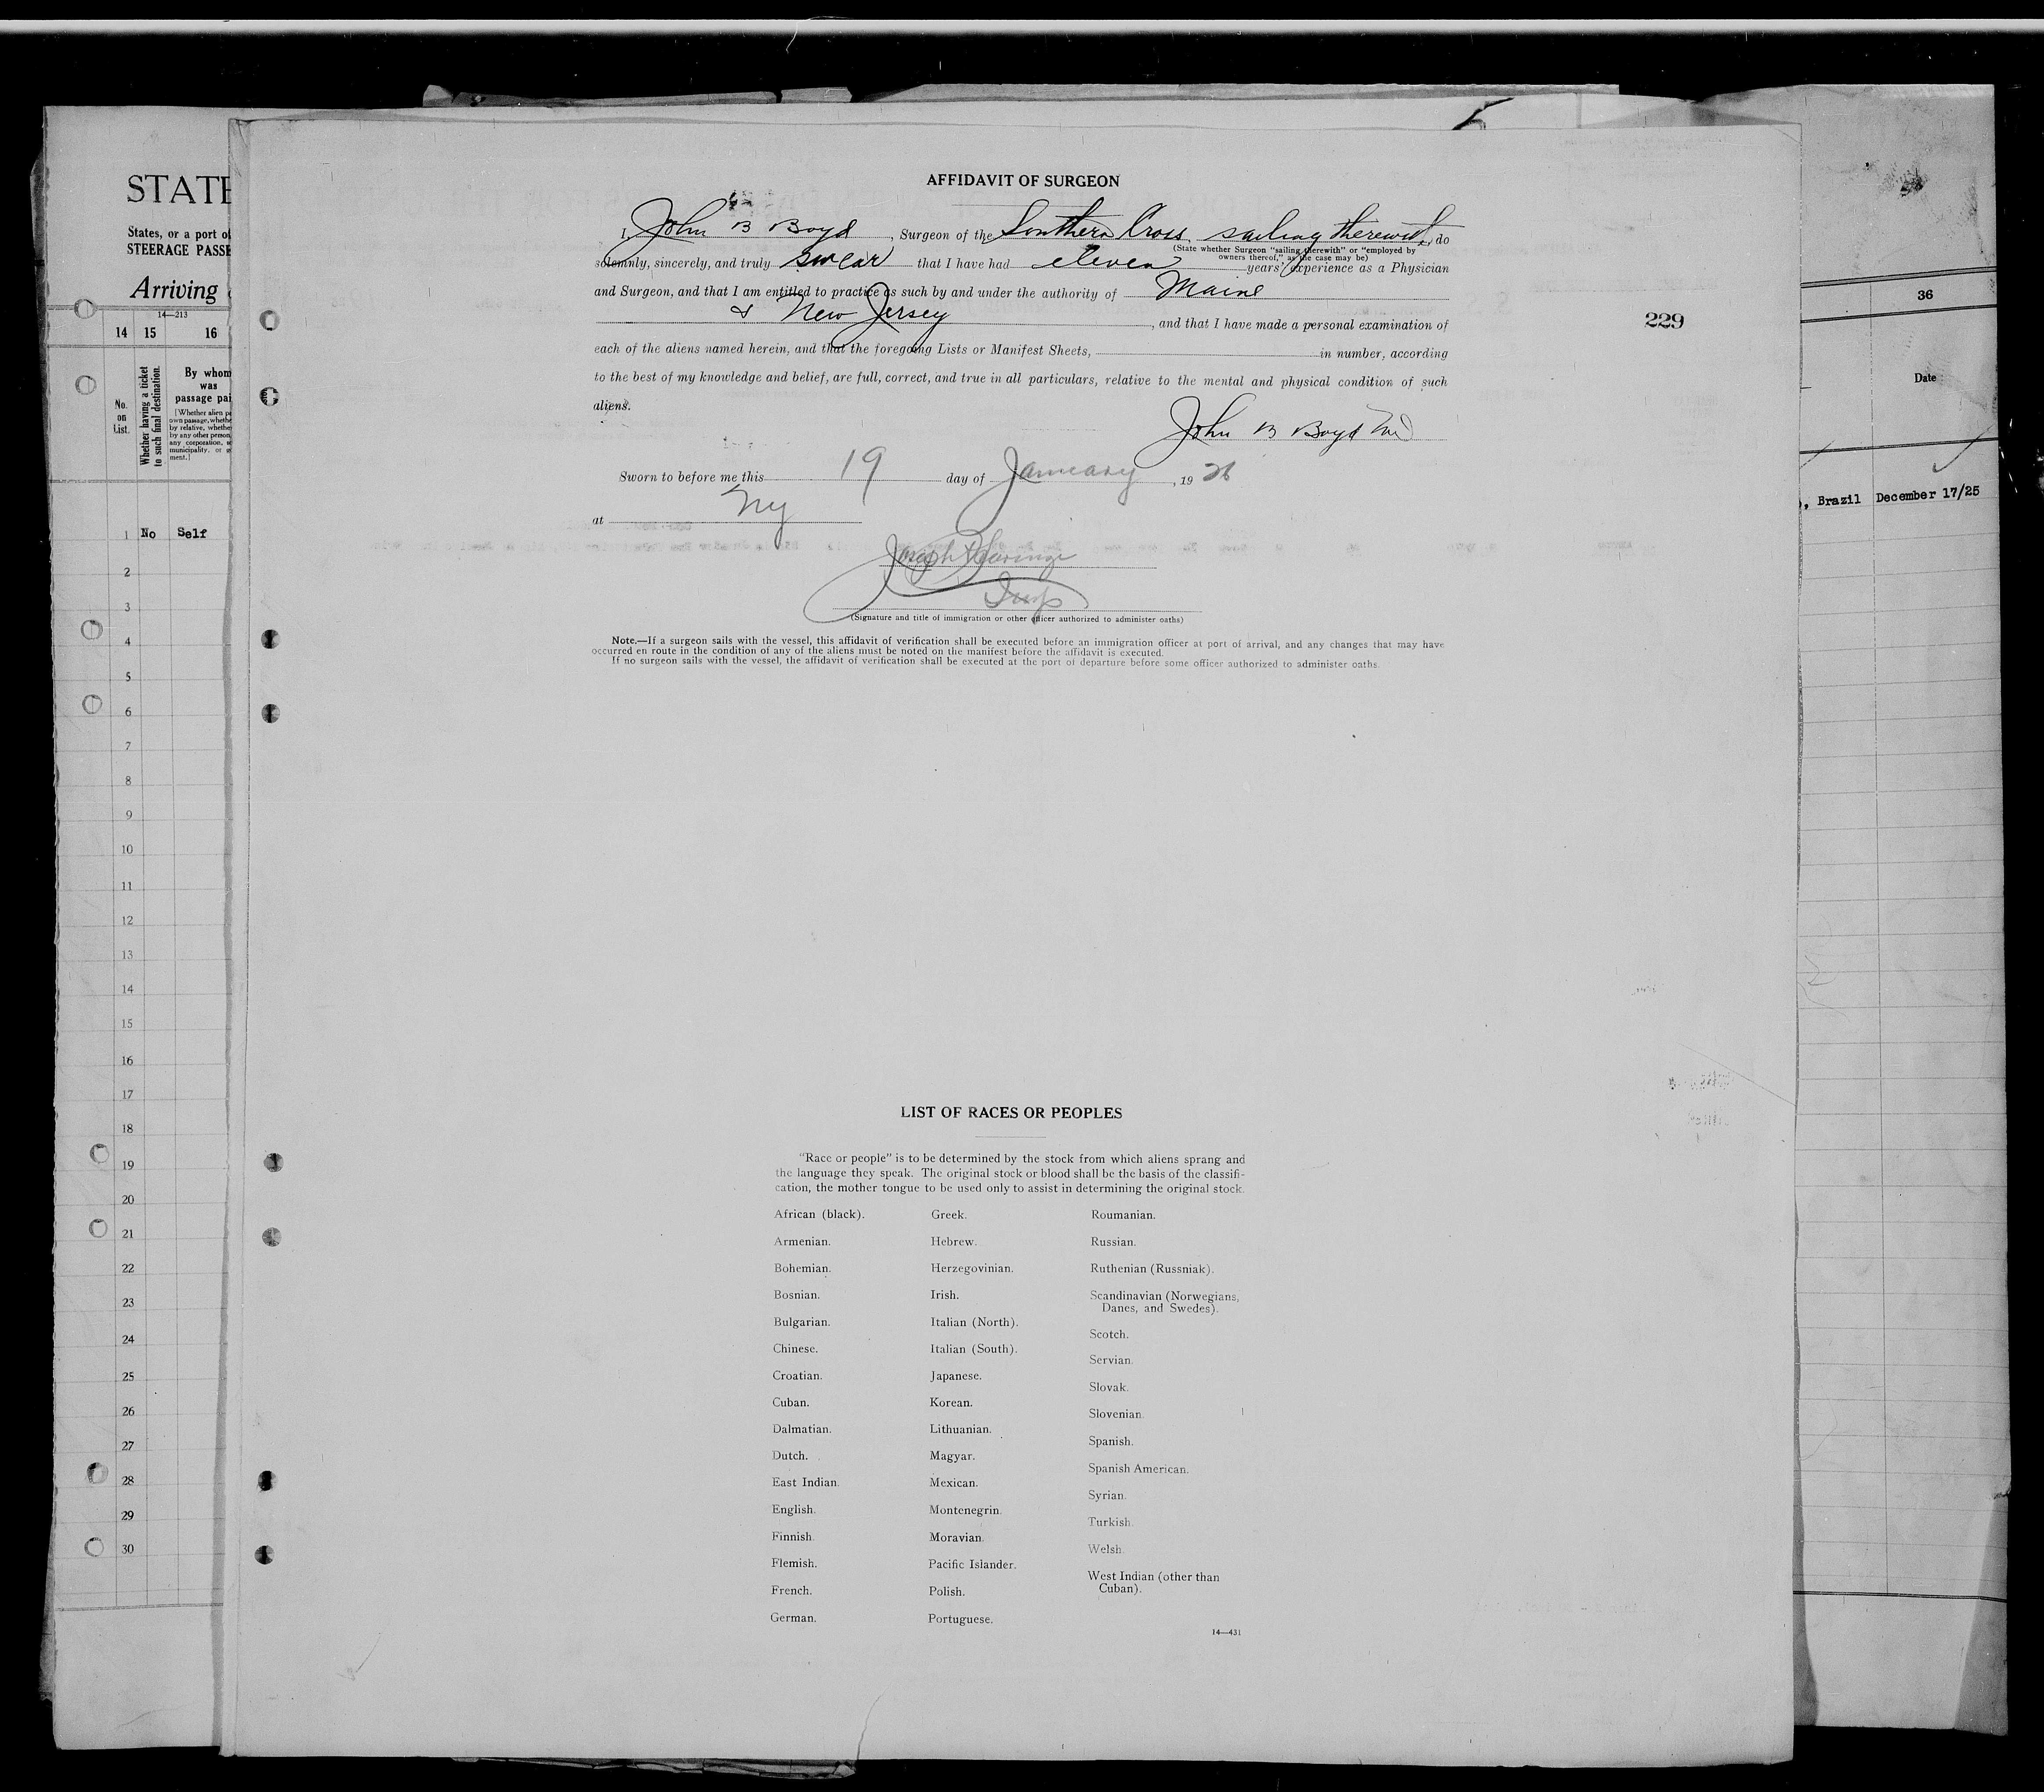 AFFIDAVIT OF SURGEON
I, John B Boyd, Surgeon of the Southern Cross, sailing therewith, do
(State whether Surgeon "sailing therewith" or "employed by
owners thereof," as the case may be)
solemnly, sincerely, and truly swear that I have had eleven years' experience as a Physician
and Surgeon, and that I am entitled to practice as such by and under the authority of Maine
& New Jersey, and that I have made a personal examination of
each of the aliens named herein, and that the foregoing Lists or Manifest Sheets, in number, according
to the best of my knowledge and belief, are full, correct, and true in all particulars, relative to the mental and physical condition of such
aliens.
John B Boyd MD
Sworn to before me this 19 day of January, 1926
at NY
Joseph
Insp
(Signature and title of immigration or other officer authorized to administer oaths)
Note.—If a surgeon sails with the vessel, this affidavit of verification shall be executed before an immigration officer at port of arrival, and any changes that may have
occurred en route in the condition of any of the aliens must be noted on the manifest before the affidavit is executed.
If no surgeon sails with the vessel, the affidavit of verification shall be executed at the port of departure before some officer authorized to administer oaths.
229
LIST OF RACES OR PEOPLES
"Race or people" is to be determined by the stock from which aliens sprang and
the language they speak. The original stock or blood shall be the basis of the classifi-
cation, the mother tongue to be used only to assist in determining the original stock.
African (black).
Armenian.
Bohemian.
Bosnian.
Bulgarian.
Chinese.
Croatian.
Cuban.
Dalmatian.
Dutch.
East Indian.
English.
Finnish.
Flemish.
French.
German.
Greek.
Hebrew.
Herzegovinian.
Irish.
Italian (North).
Italian (South).
Japanese.
Korean.
Lithuanian.
Magyar.
Mexican.
Montenegrin.
Moravian.
Pacific Islander.
Polish.
Portuguese.
Roumanian.
Russian.
Ruthenian (Russniak).
Scandinavian (Norwegians,
Danes, and Swedes).
Scotch.
Servian.
Slovak.
Slovenian.
Spanish.
Spanish American.
Syrian.
Turkish.
Welsh.
West Indian (other than
Cuban).
14—431
STATE
States, or a port of
STEERAGE PASSE
Arriving
14—213
14 15 16
No.
on
List.
Whether having a ticket
to such final destination.
By whom
was
passage pai
[Whether alien p
own passage, whethe
by relative, whethe
by any other person,
any corporation, s
municipality, or g
ment.]
1 No Self
2
3
4
5
6
7
8
9
10
11
12
13
14
15
16
17
18
19
20
21
22
23
24
25
26
27
28
29
30
36
Date
, Brazil December 17/25